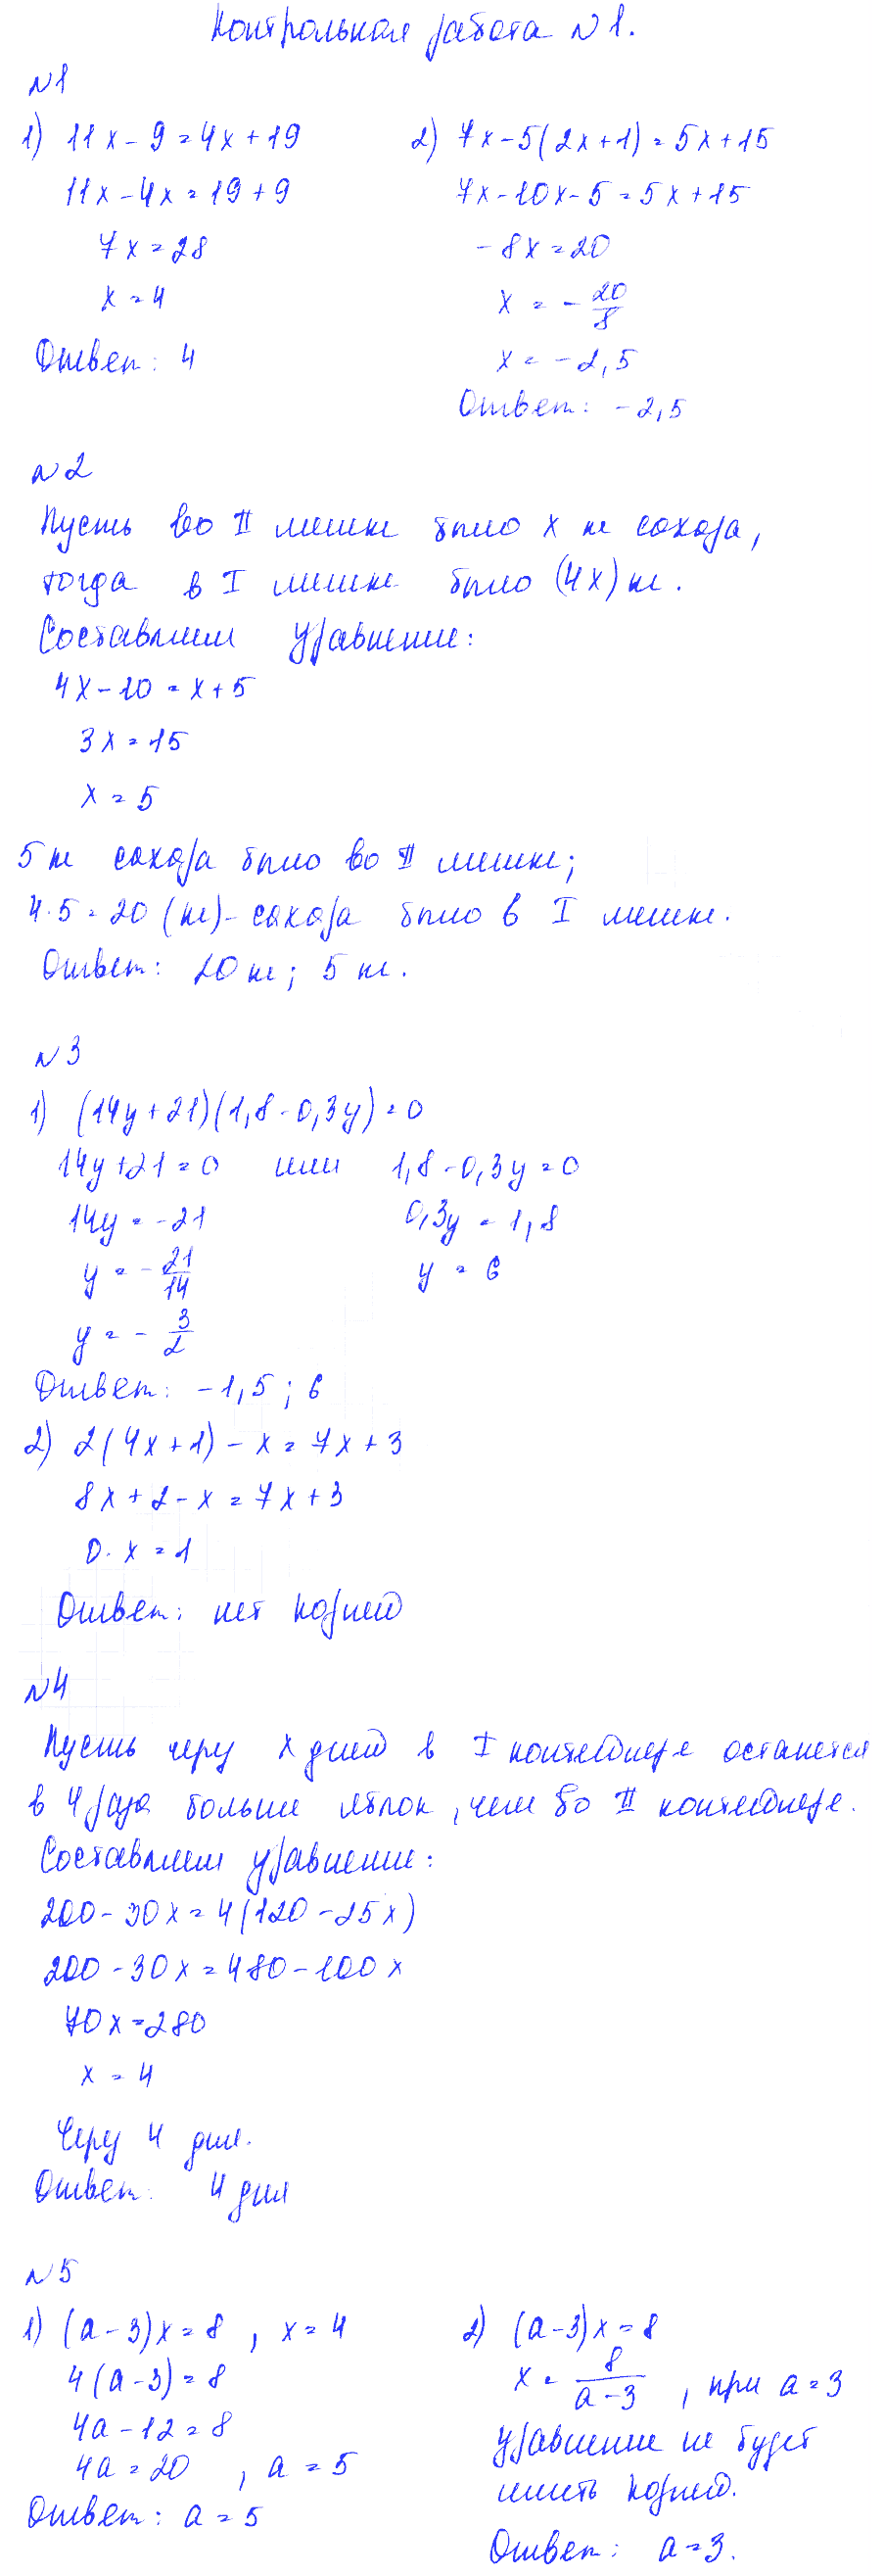 Контрольная работа №1.
№1
1) 11x - 9 = 4x + 19
11x - 4x = 19 + 9
7x = 28
x = 4
Ответ: 4
2) 7x - 5(2x + 1) = 5x + 15
7x - 10x - 5 = 5x + 15
-8x = 20
x = -20/8
x = -2,5
Ответ: -2,5
№2
Пусть во II мешке было x кг сахара,
тогда в I мешке было (4x) кг.
Составляем уравнение:
4x - 10 = x + 5
3x = 15
x = 5
5 кг сахара было во II мешке;
4·5 = 20 (кг) - сахара было в I мешке.
Ответ: 20 кг; 5 кг.
№3
1) (14y + 21)(1,8 - 0,3y) = 0
14y + 21 = 0 или 1,8 - 0,3y = 0
14y = -21 0,3y = 1,8
y = -21/14 y = 6
y = -3/2
Ответ: -1,5; 6
2) 2(4x + 1) - x = 7x + 3
8x + 2 - x = 7x + 3
0·x = 1
Ответ: нет корней
№4
Пусть через x дней в I контейнере останется
в 4 раза больше яблок, чем во II контейнере.
Составляем уравнение:
200 - 30x = 4(120 - 25x)
200 - 30x = 480 - 100x
70x = 280
x = 4
Через 4 дня.
Ответ: 4 дня
№5
1) (a - 3)x = 8, x = 4
4(a - 3) = 8
4a - 12 = 8
4a = 20, a = 5
Ответ: a = 5
2) (a - 3)x = 8
x = 8/(a - 3), при a = 3
уравнение не будет
иметь корней.
Ответ: a = 3.